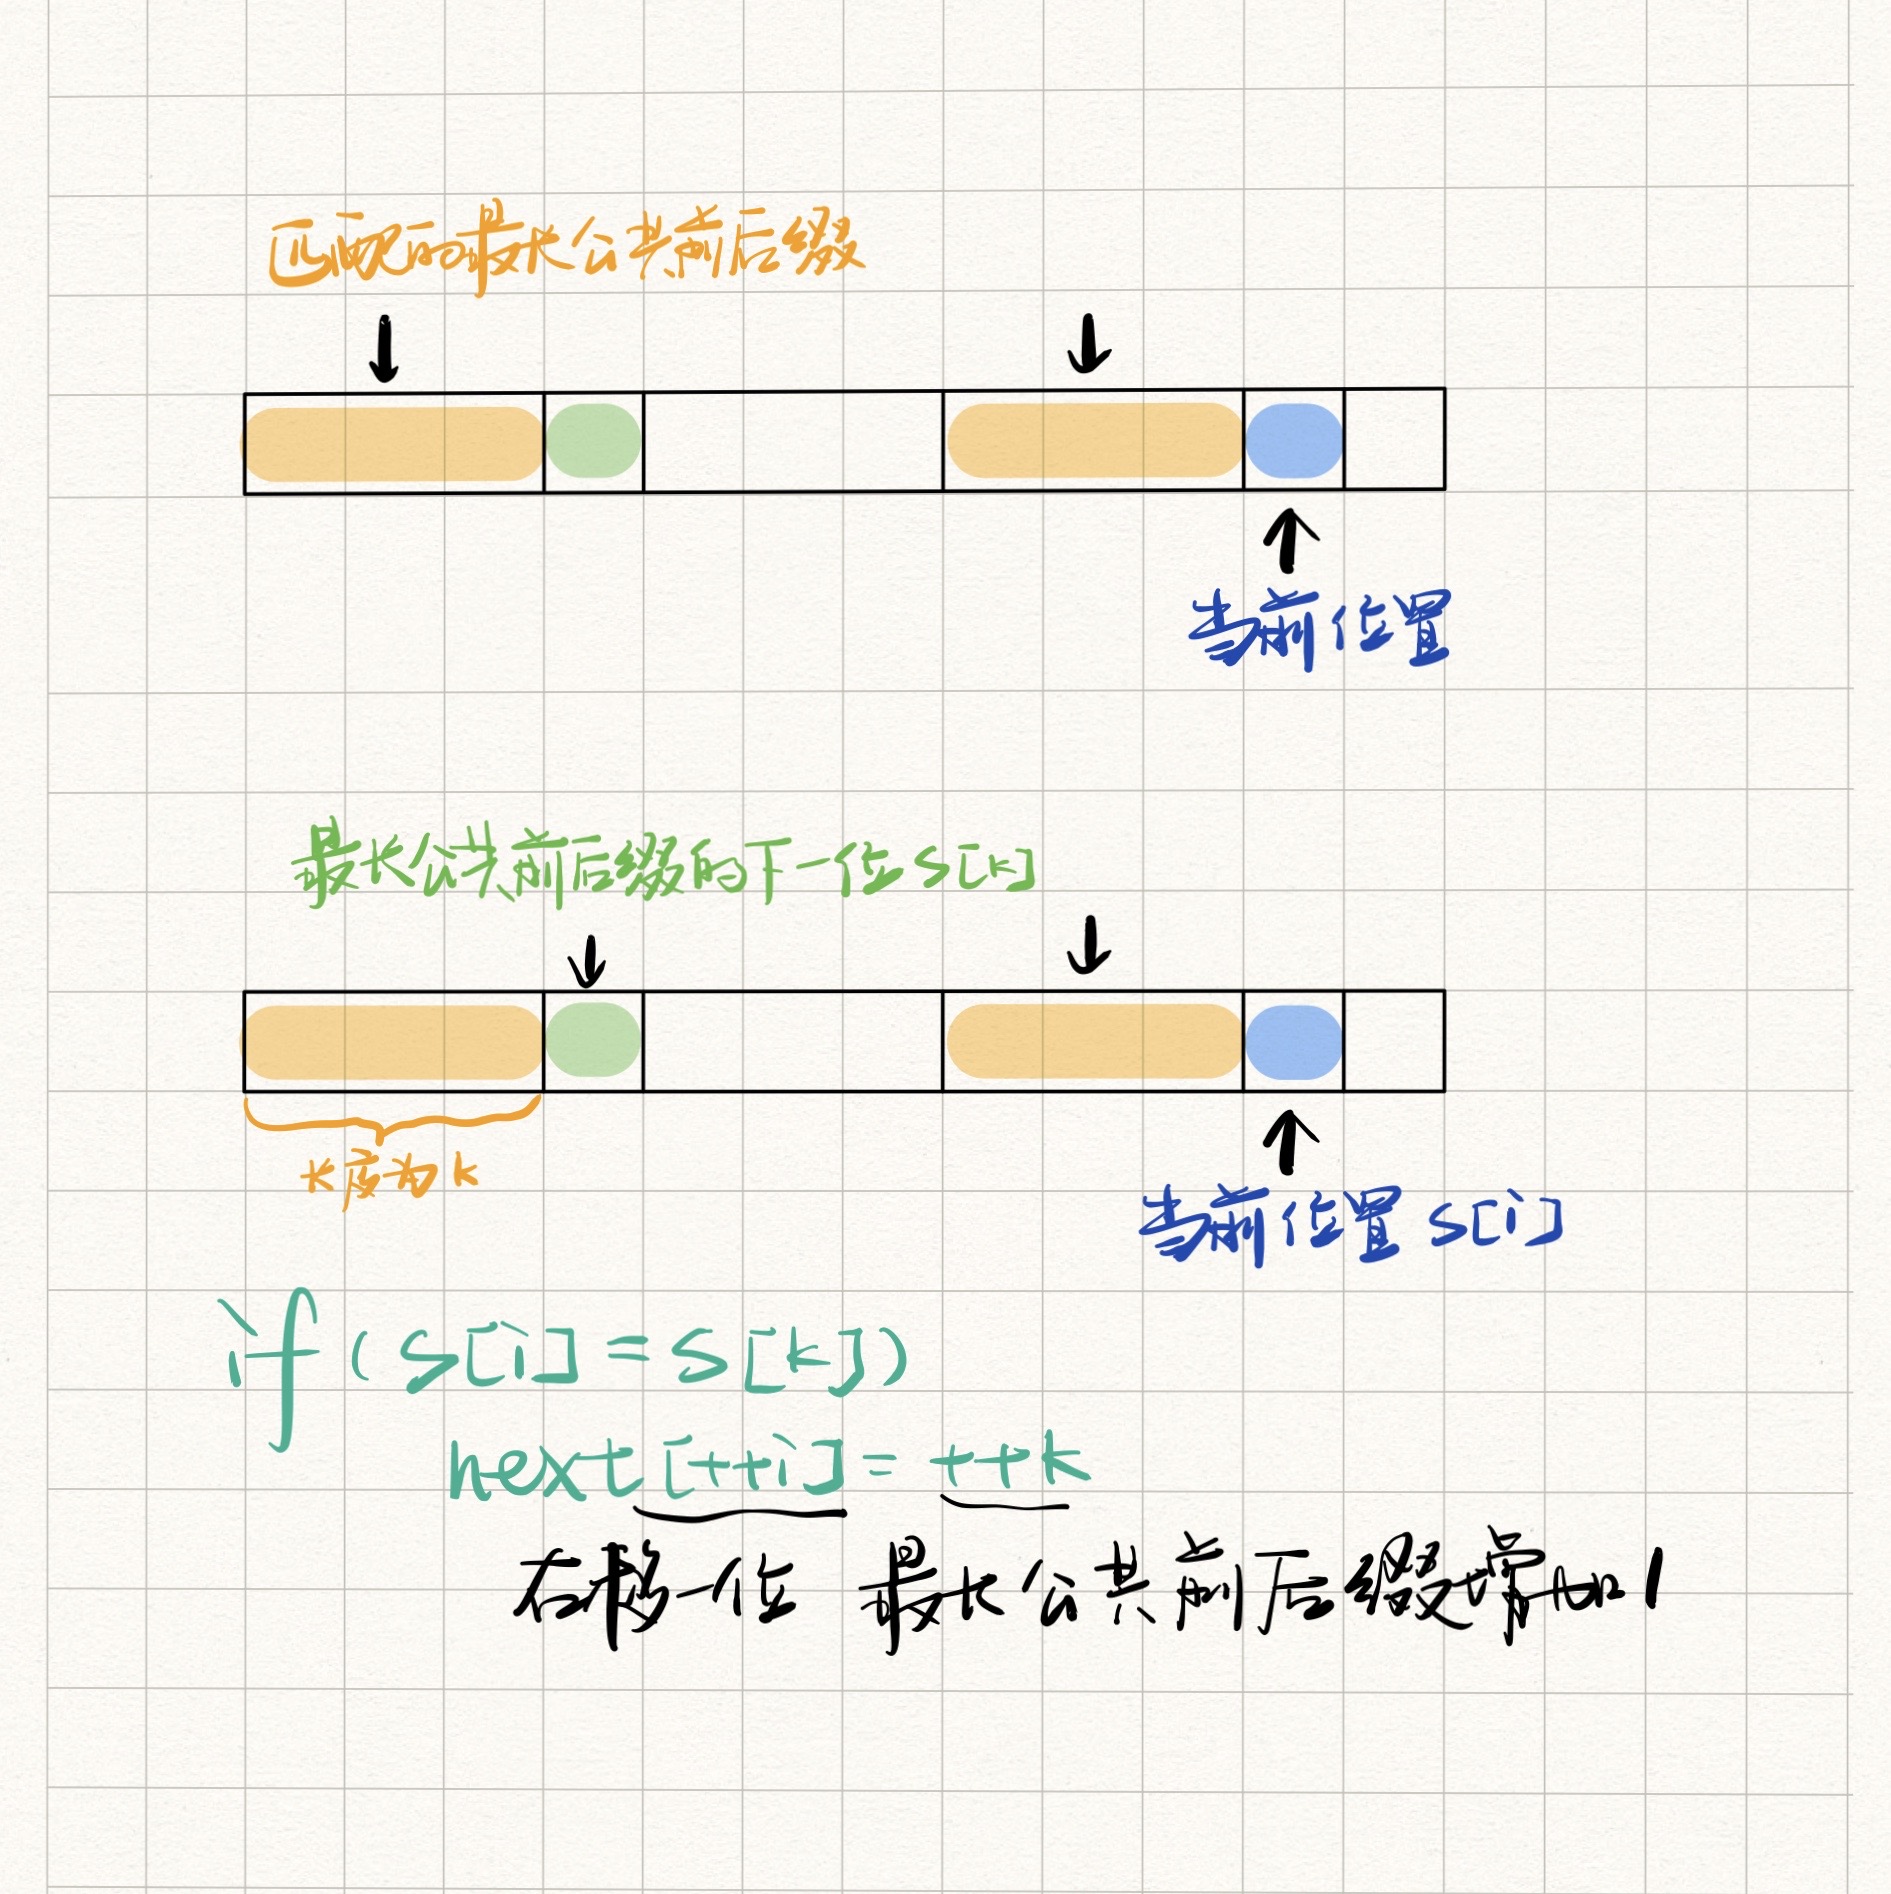 匹配的最长公共前后缀
当前位置
最长公共前后缀的下一位 S[k]
长度为 k
当前位置 S[i]
if (S[i] = S[k])
next[++i] = ++k
右移一位 最长公共前后缀增加1